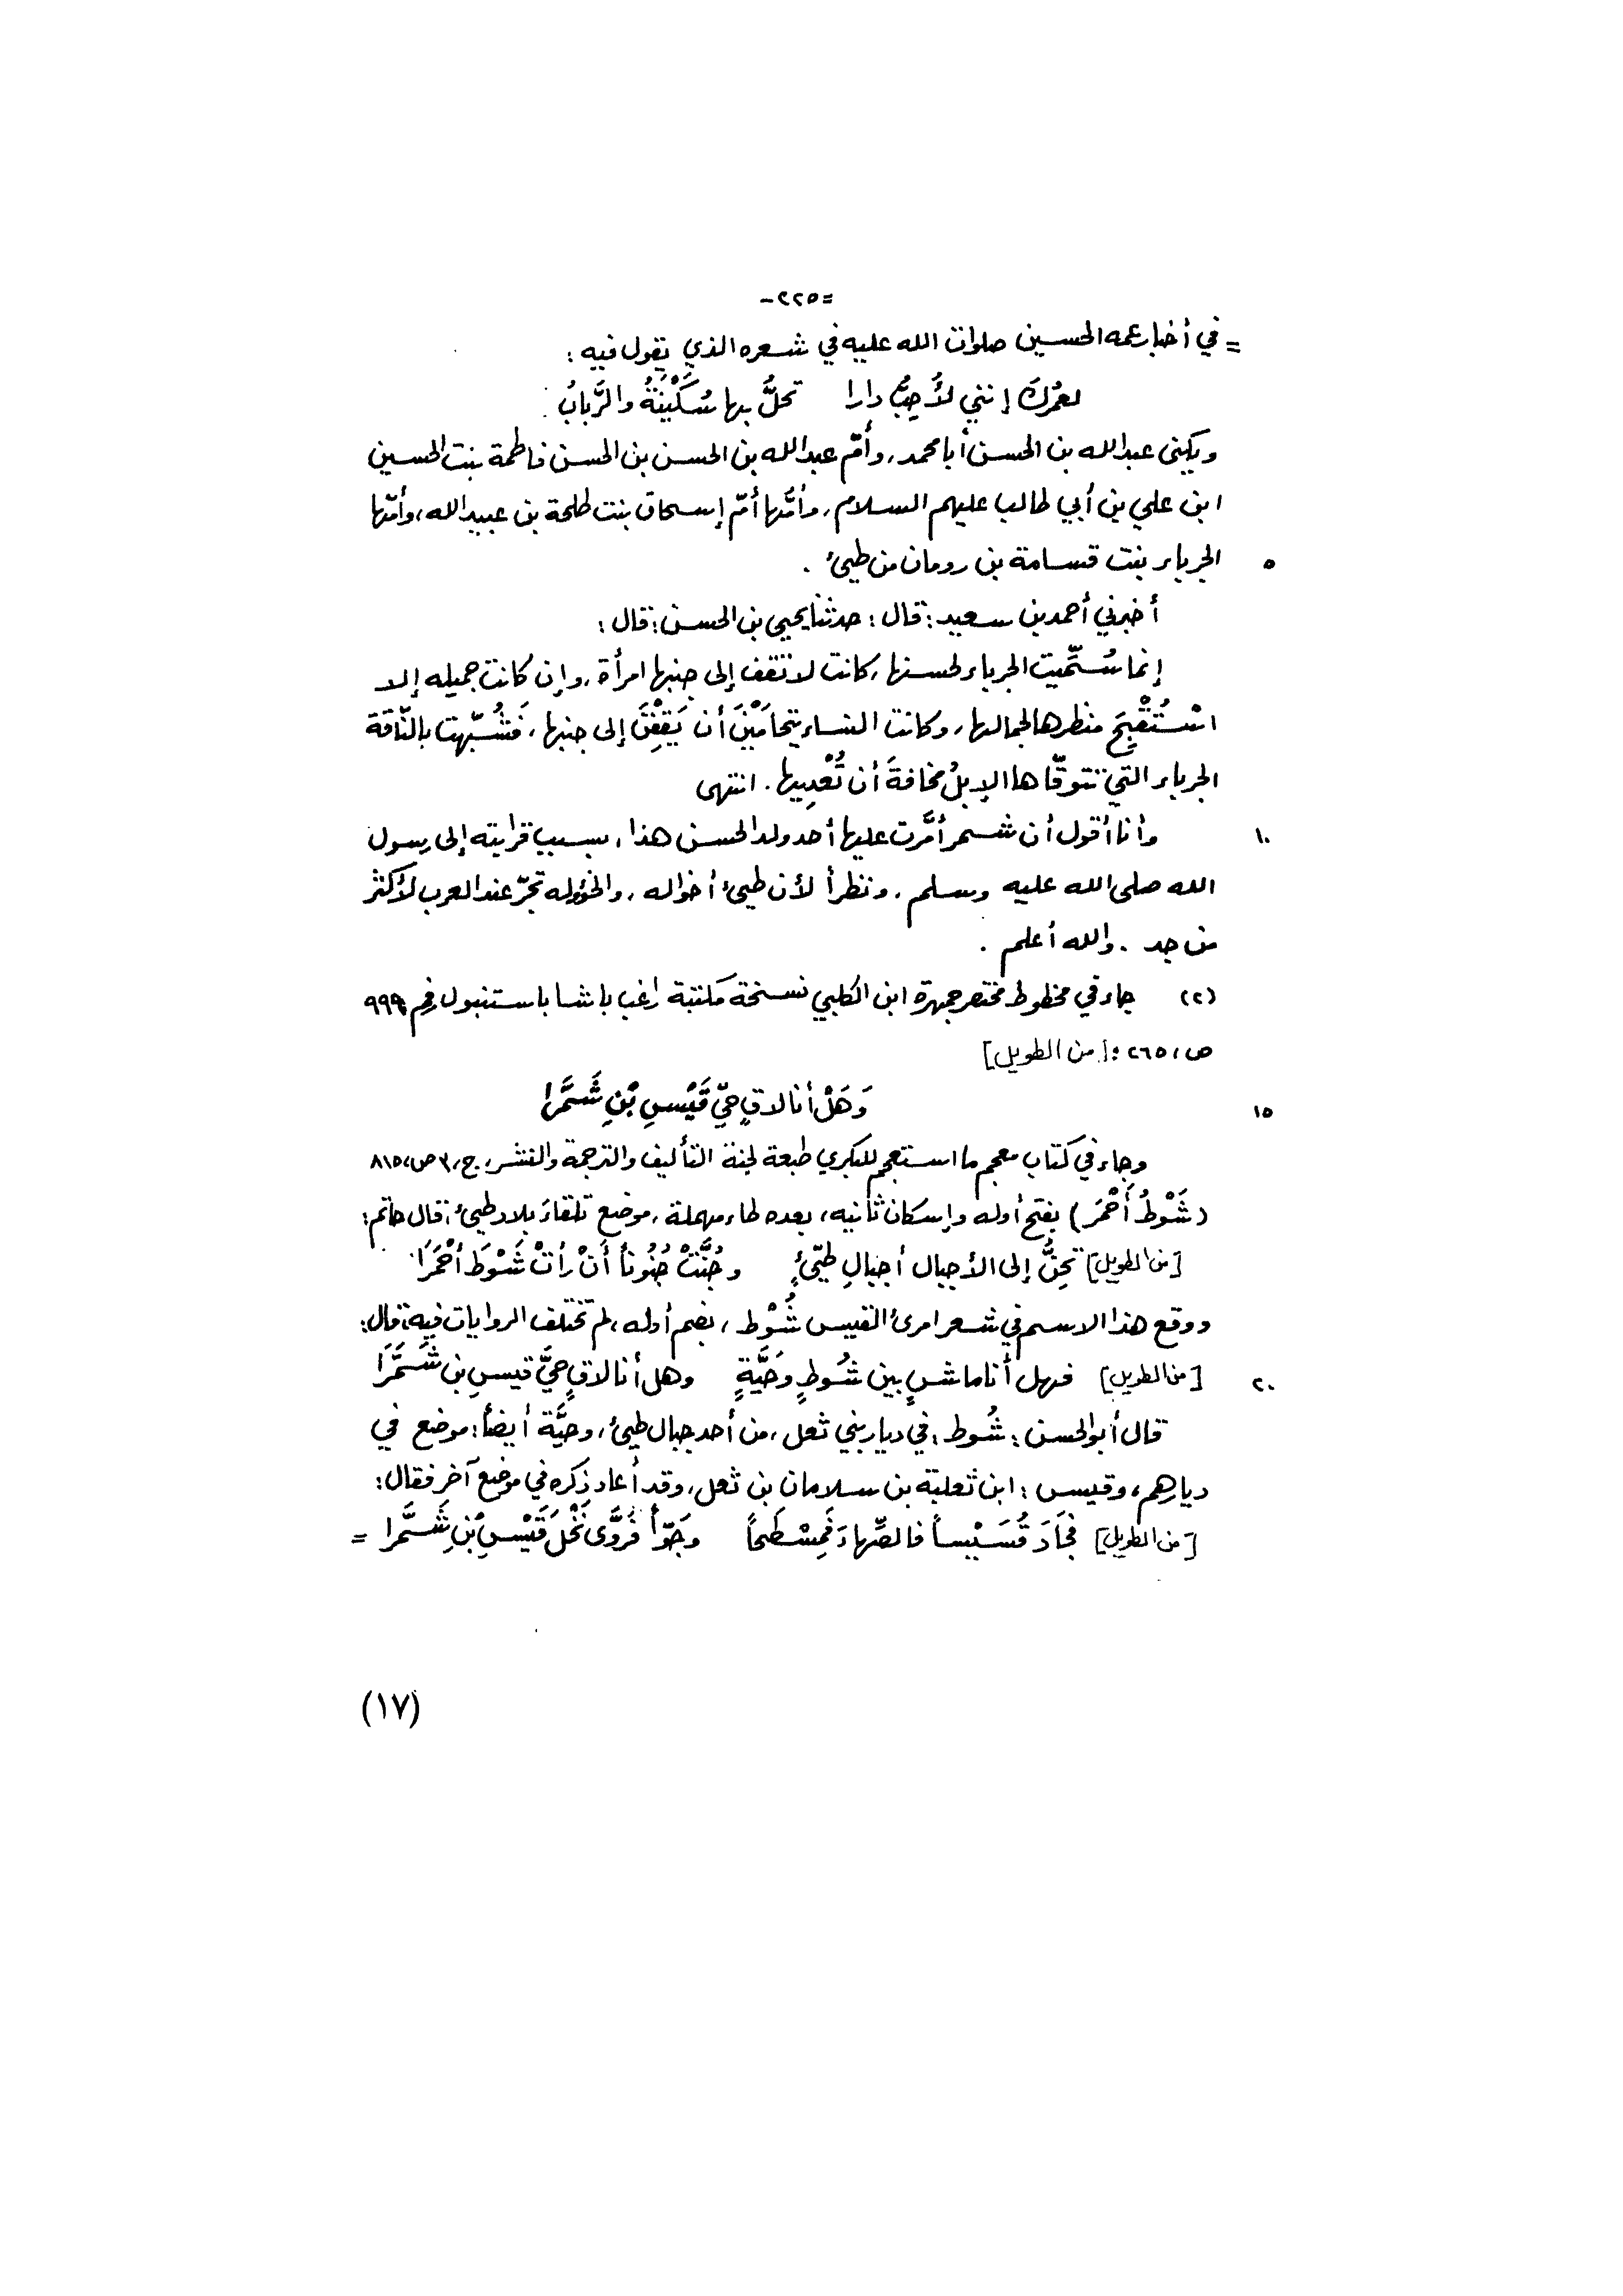 =٢٢٥-
= في أخبار عمه الحسين صلوات الله عليه في شعره الذي يقول فيه :
لعمرُكَ إنني لأُحِبُّ دارا تحلُّ بها سُكَيْنَةُ والرَّبابُ
ويكنى عبدالله بن الحسن أبا محمد، وأمّ عبدالله بن الحسن بن الحسن فاطمة بنت الحسين
ابن علي بن أبي طالب عليهم السلام، وأمّها أمّ إسحاق بنت طلحة بن عبيدالله، وأمّها
٥ الجرباء بنت قسامة بن رومان من طيئ .
أخبرني أحمد بن سعيد: قال : حدثنا يحيى بن الحسن: قال :
إنما سُمِّيت الجرباء لحسنها، كانت لا تقف إلى جنبها امرأة، وإن كانت جميله إلا
اسْتُقْبِحَ منظرها لجمالها، وكانت النساء يتحامَيْنَ أن يَقِفْنَ إلى جنبها، فَشُبّهت بالنّاقة
الجرباء التي تتوقّاها الإبلُ مخافةَ أن تُعْدِيها . انتهى
١٠ وأنا أقول أن شمر أمَّرت عليها أحد ولد الحسن هذا، بسبب قرابته إلى رسول
الله صلى الله عليه وسلم، ونظراً لأن طيئ أخواله، والخؤوله تجرّ عند العرب لأكثر
من جد . والله أعلم .
(٢) جاء في مخطوط مختصر جمهرة ابن الكلبي نسخة مكتبة راغب باشا باستنبول رقم ٩٩٩
ص، ٢٦٥ : [من الطويل]
١٥ وَهَلْ أنا لاقٍ حيّ قَيْسِ بْنِ شَمَّرا
وجاء في كتاب معجم ما استعجم للبكري طبعة لجنة التأليف والترجمة والنشر، ج، ٣ ص، ٨١٥
(شَوْطُ أَحْمَرَ) بفتح أوله وإسكان ثانيه، بعده طاء مهملة، موضع تلقاءَ بلاد طيئ، قال حاتم:
[من الطويل] تَحِنُّ إلى الأجبال أجبالِ طيّئٍ وجُنَّتْ جُنُوناً أَنْ رأتْ شَوْطَ أحْمَرَا
ووقع هذا الاسم في شعر امرئ القيس شُوْط، بضم أوله، لم تختلف الروايات فيه، قال:
٢٠ [من الطويل] فهل أنا ماشٍ بين شُوطٍ وحَيَّةٍ وهل أنا لاقٍ حيَّ قيسِ بنِ شَمَّرَا
قال أبو الحسن : شُوط : في ديار بني ثعل، من أحد جبال طيئ، وحيَّة أيضاً : موضع في
ديارهم، وقيس : ابن ثعلبة بن سلامان بن ثعل، وقد أعاد ذِكره في موضع آخر فقال :
[من الطويل] فجَادَ قُسَيْساً فالصِّهاءَ فَمِسْطَحاً وجَوّاً فروَّى نَخْلَ قَيْسِ بْنِ شَمَّرا =
(١٧)